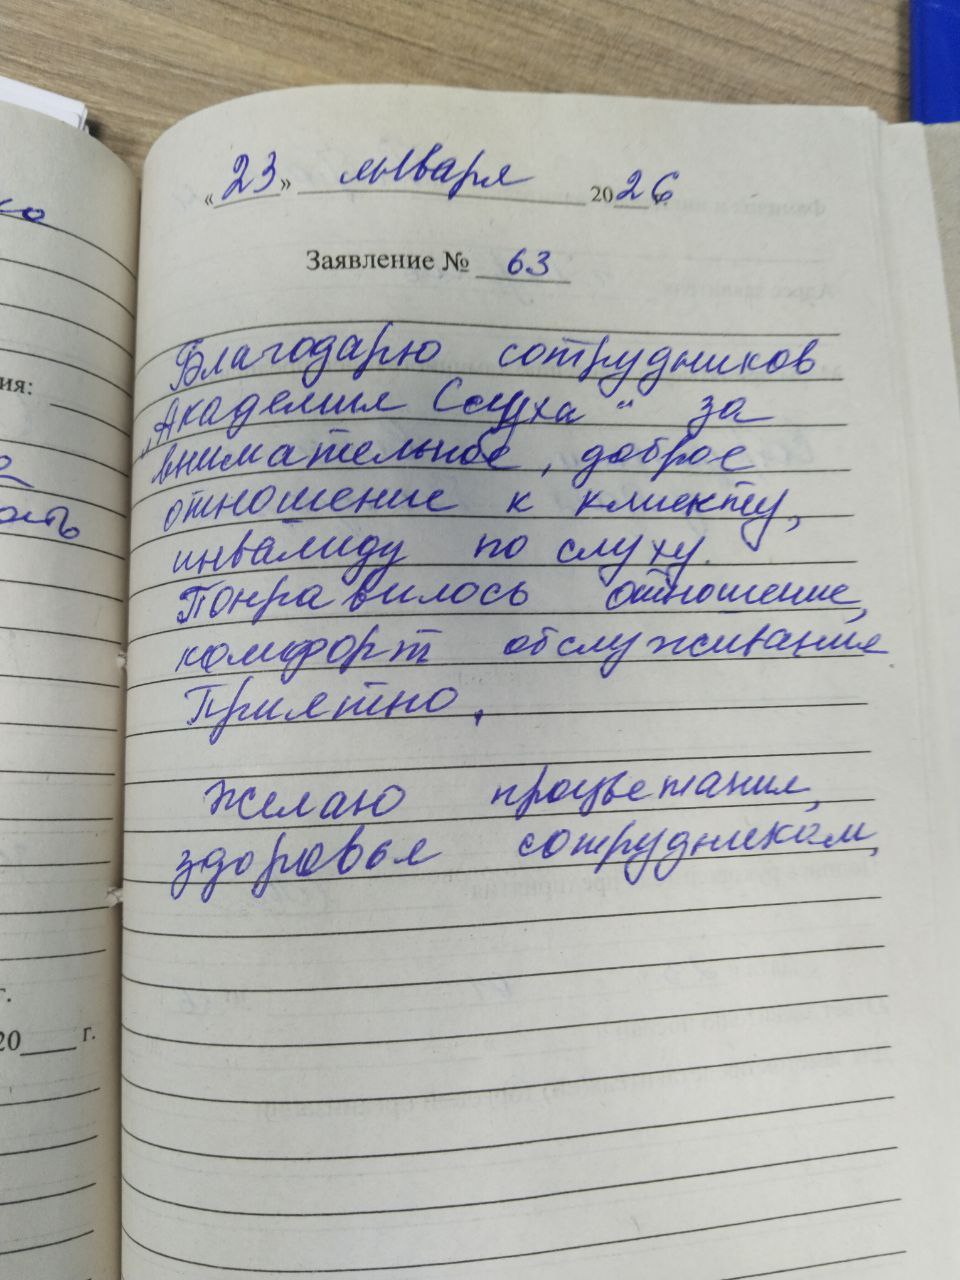 «23» января 2026
Заявление № 63
Благодарю сотрудников
„Академия Слуха" за
внимательное, доброе
отношение к клиенту,
инвалиду по слуху.
Понравилось отношение,
комфорт обслуживания
Приятно.
Желаю процветания,
здоровья сотрудникам,
ия:
г.
20____ г.